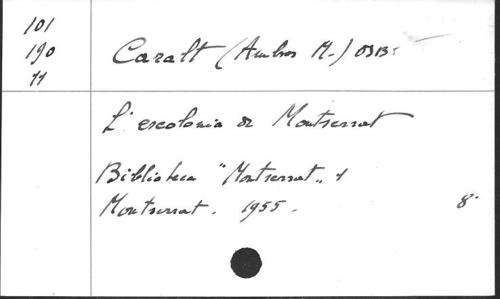 101
190
11
Caralt (Ambros M.) OSB:
L'escolania de Montserrat
Biblioteca "Montserrat" 1
Montserrat. 1955.
8º